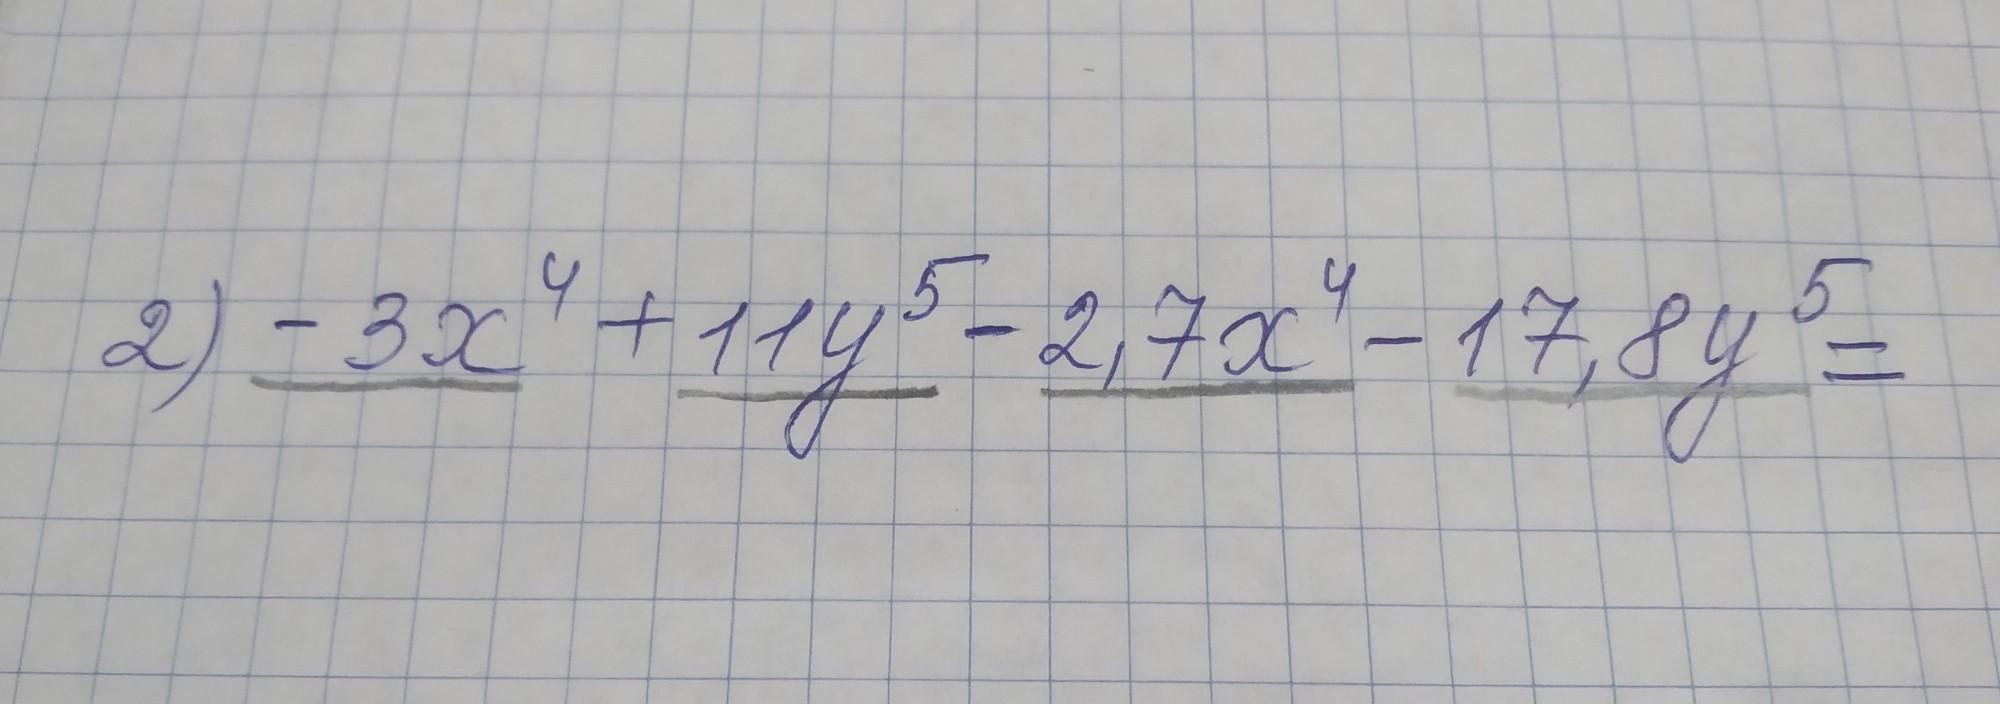 2) -3x⁴ + 11y⁵ - 2,7x⁴ - 17,8y⁵ =